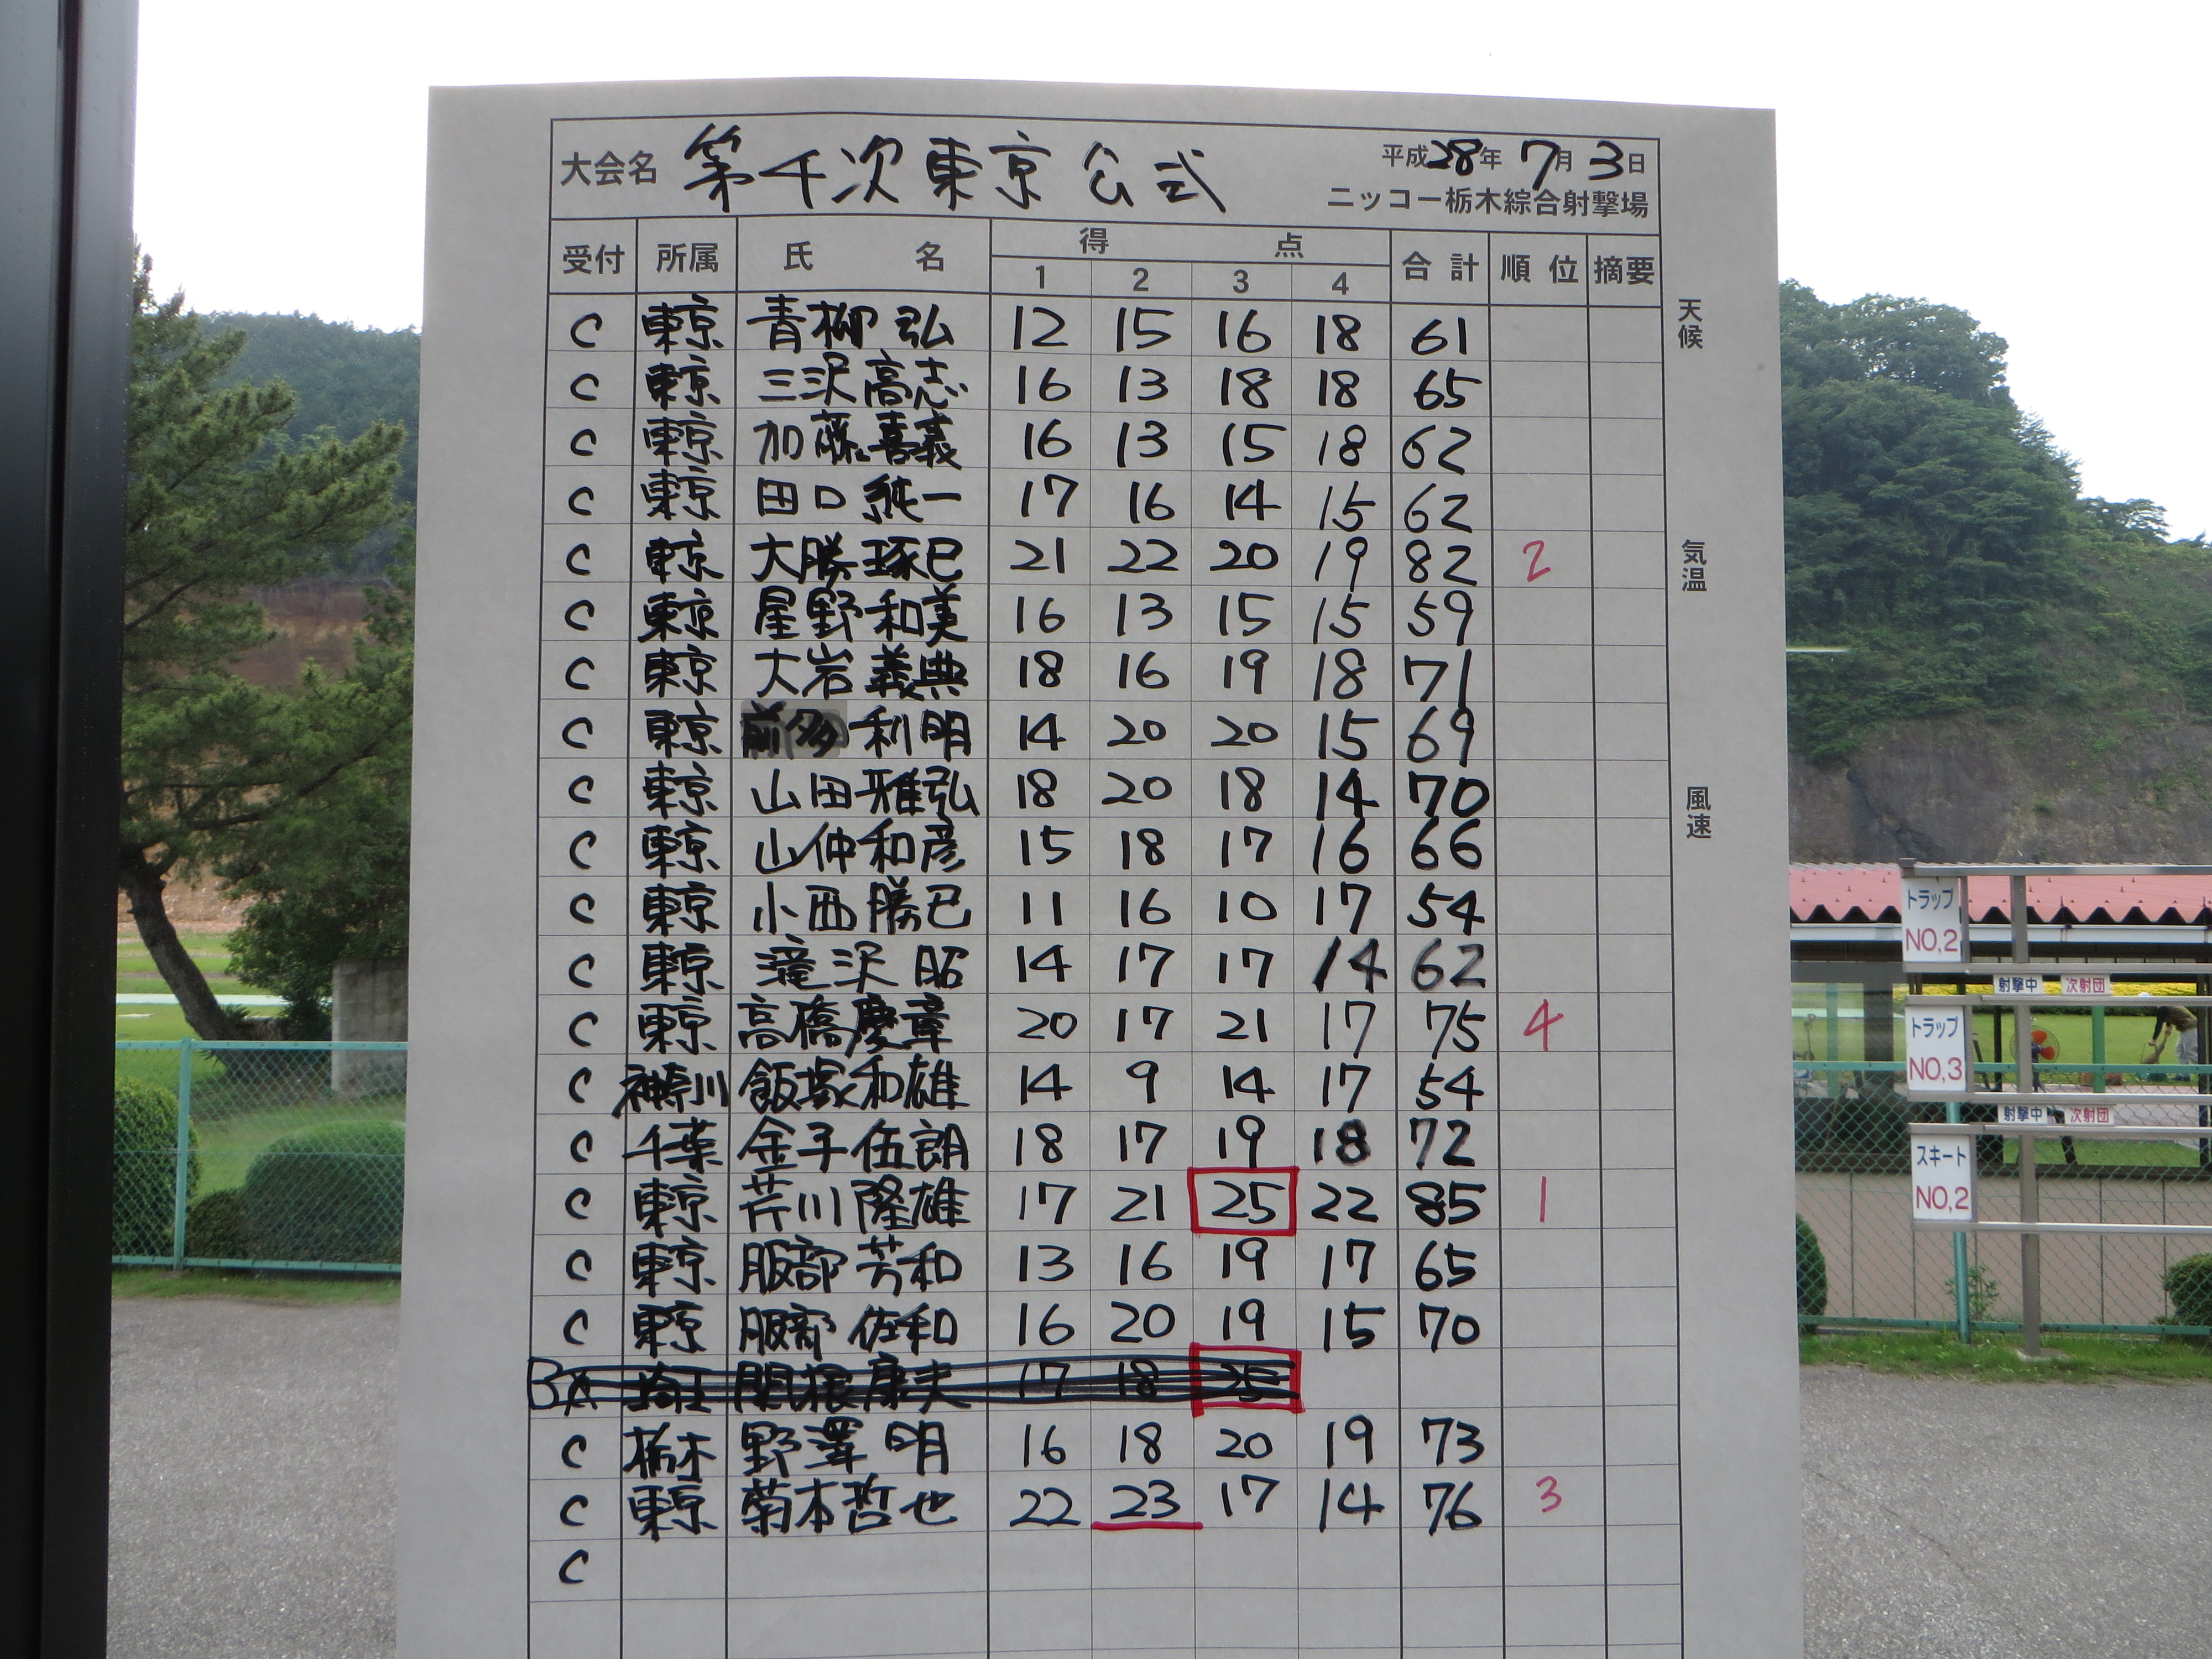 大会名 第4次東京公式 平成28年7月3日
ニッコー栃木綜合射撃場
受付 所属 氏名 得点 合計 順位 摘要
1 2 3 4
C 東京 青柳 弘 12 15 16 18 61
C 東京 三沢高志 16 13 18 18 65
C 東京 加藤喜義 16 13 15 18 62
C 東京 田口純一 17 16 14 15 62
C 東京 大勝琢巳 21 22 20 19 82 2
C 東京 星野和美 16 13 15 15 59
C 東京 大岩義典 18 16 19 18 71
C 東京 前多利明 14 20 20 15 69
C 東京 山田雅弘 18 20 18 14 70
C 東京 山仲和彦 15 18 17 16 66
C 東京 小西勝巳 11 16 10 17 54
C 東京 滝沢 昭 14 17 17 14 62
C 東京 高橋慶章 20 17 21 17 75 4
C 神奈川 飯塚和雄 14 9 14 17 54
C 千葉 金子伍朗 18 17 19 18 72
C 東京 芹川隆雄 17 21 25 22 85 1
C 東京 服部芳和 13 16 19 17 65
C 東京 服部佐和 16 20 19 15 70
B 埼玉 関根康夫 17 18 25
C 栃木 野澤 明 16 18 20 19 73
C 東京 菊本哲也 22 23 17 14 76 3
C
天候
気温
風速
トラップ
NO,2
射撃中 次射団
トラップ
NO,3
射撃中 次射団
スキート
NO,2